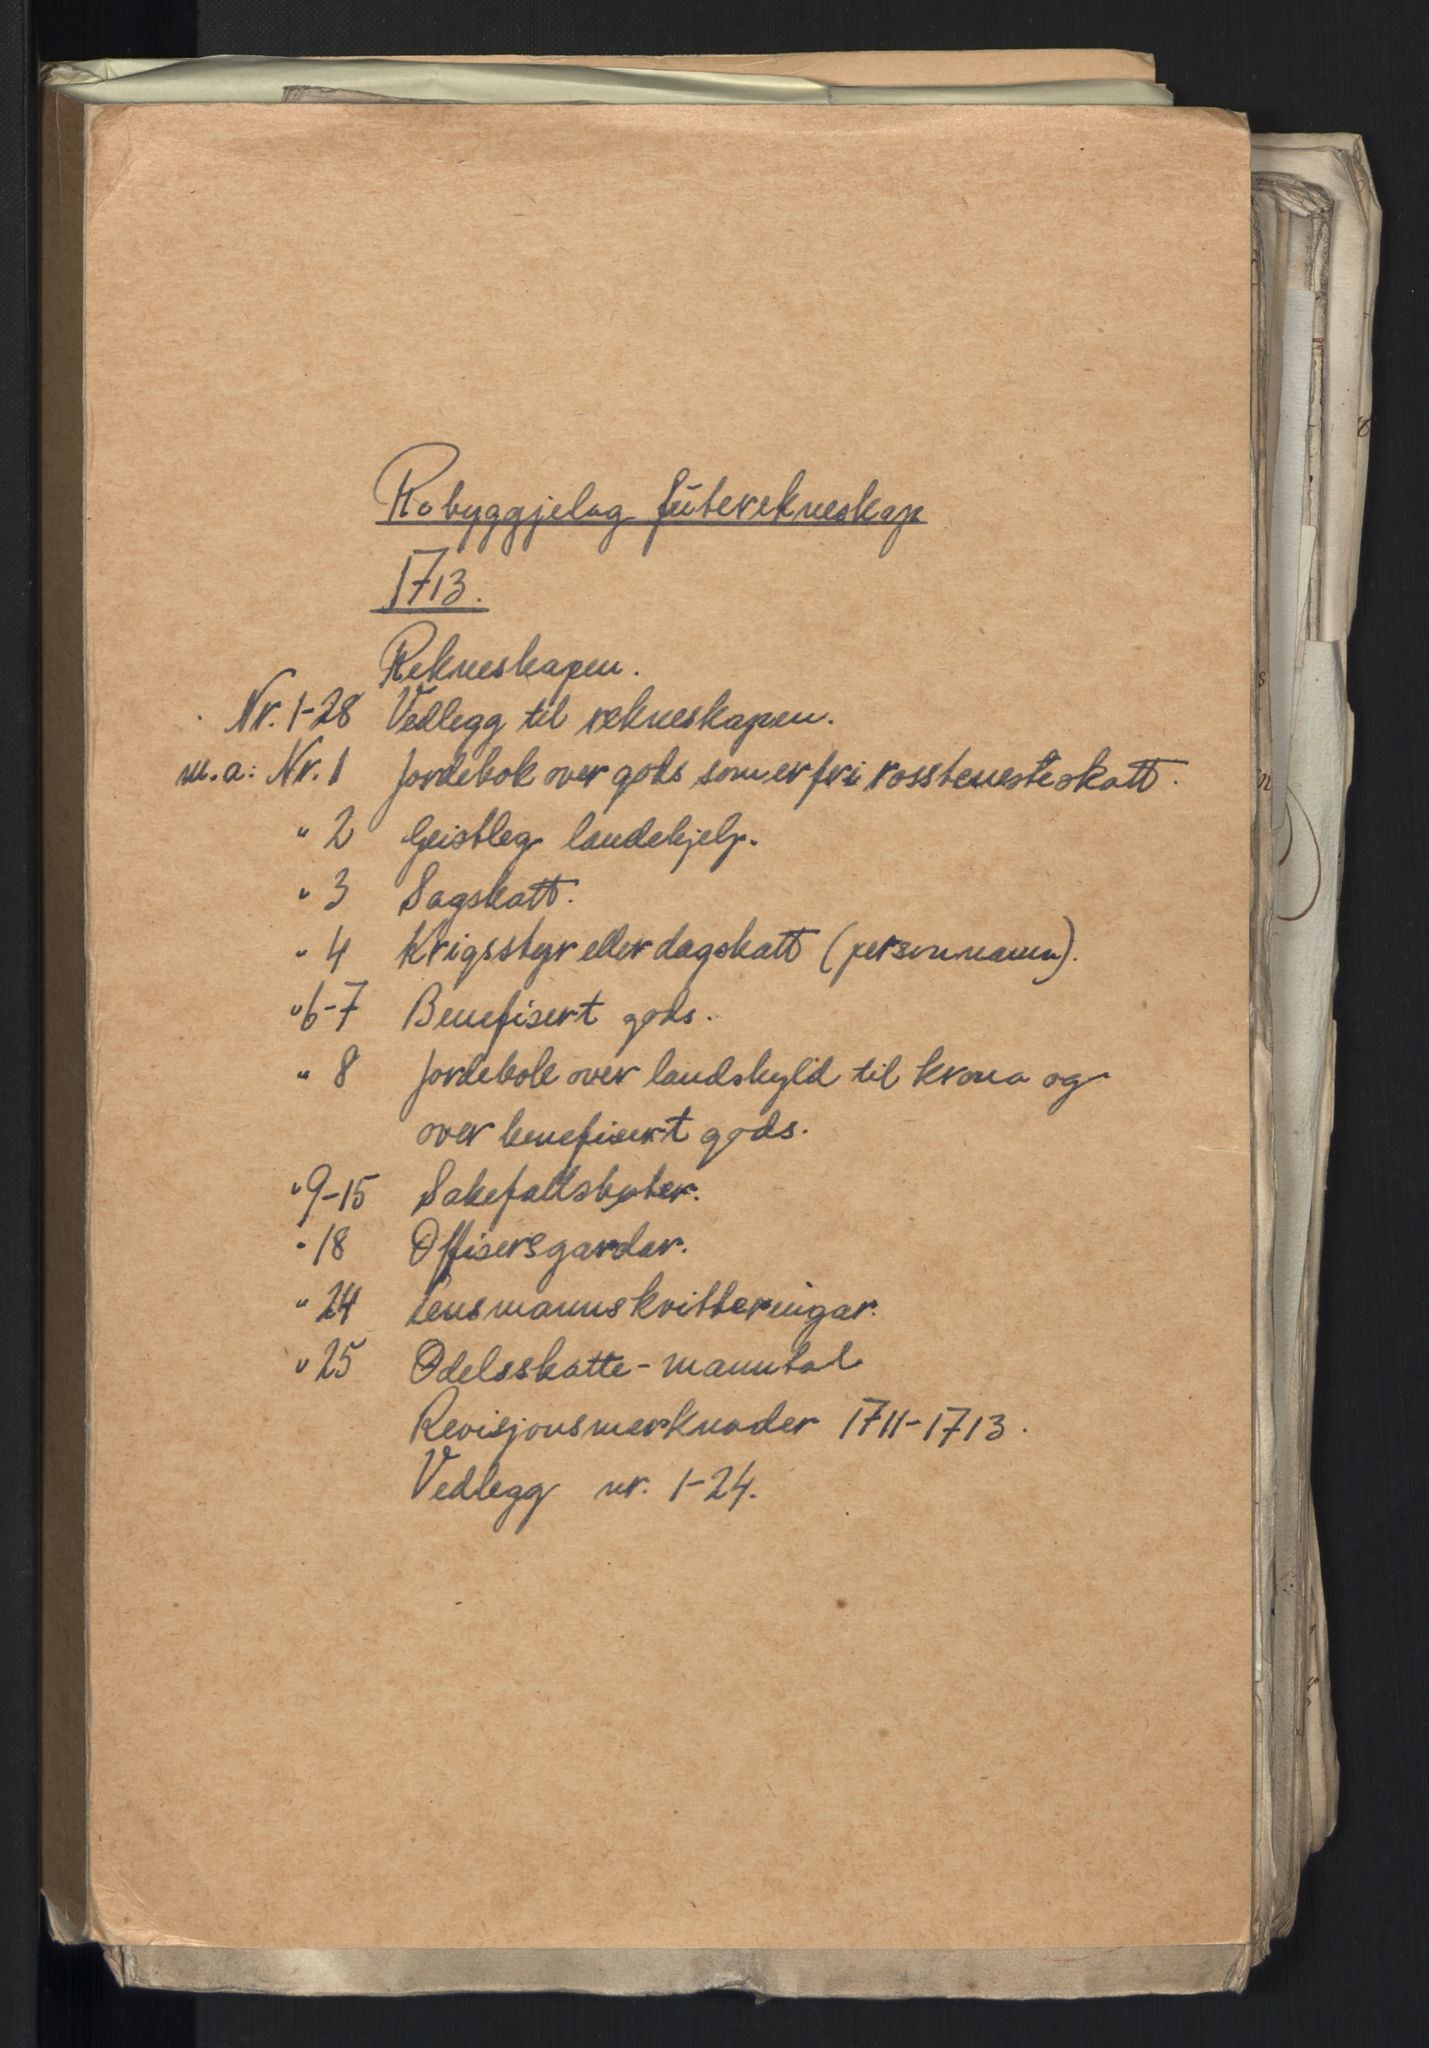 Robyggjelag futerekneskap
1713.
Rekneskapen.
Nr. 1-28 Vedlegg til rekneskapen.
m.a: Nr. 1 Jordebok over gods som er fri rosstenesteskatt.
" 2 Geistleg landehjelp.
" 3 Sagskatt.
" 4 Krigsstyr eller dagskatt (personnamn).
" 6-7 Benefisert gods.
" 8 Jordebok over landskyld til krona og
over benefisert gods.
" 9-15 Sakefallsbøter.
" 18 Offisersgardar.
" 24 Lensmannskvitteringar.
" 25 Odelsskatte-manntal
Revisjonsmerknader 1711-1713.
Vedlegg nr. 1-24.